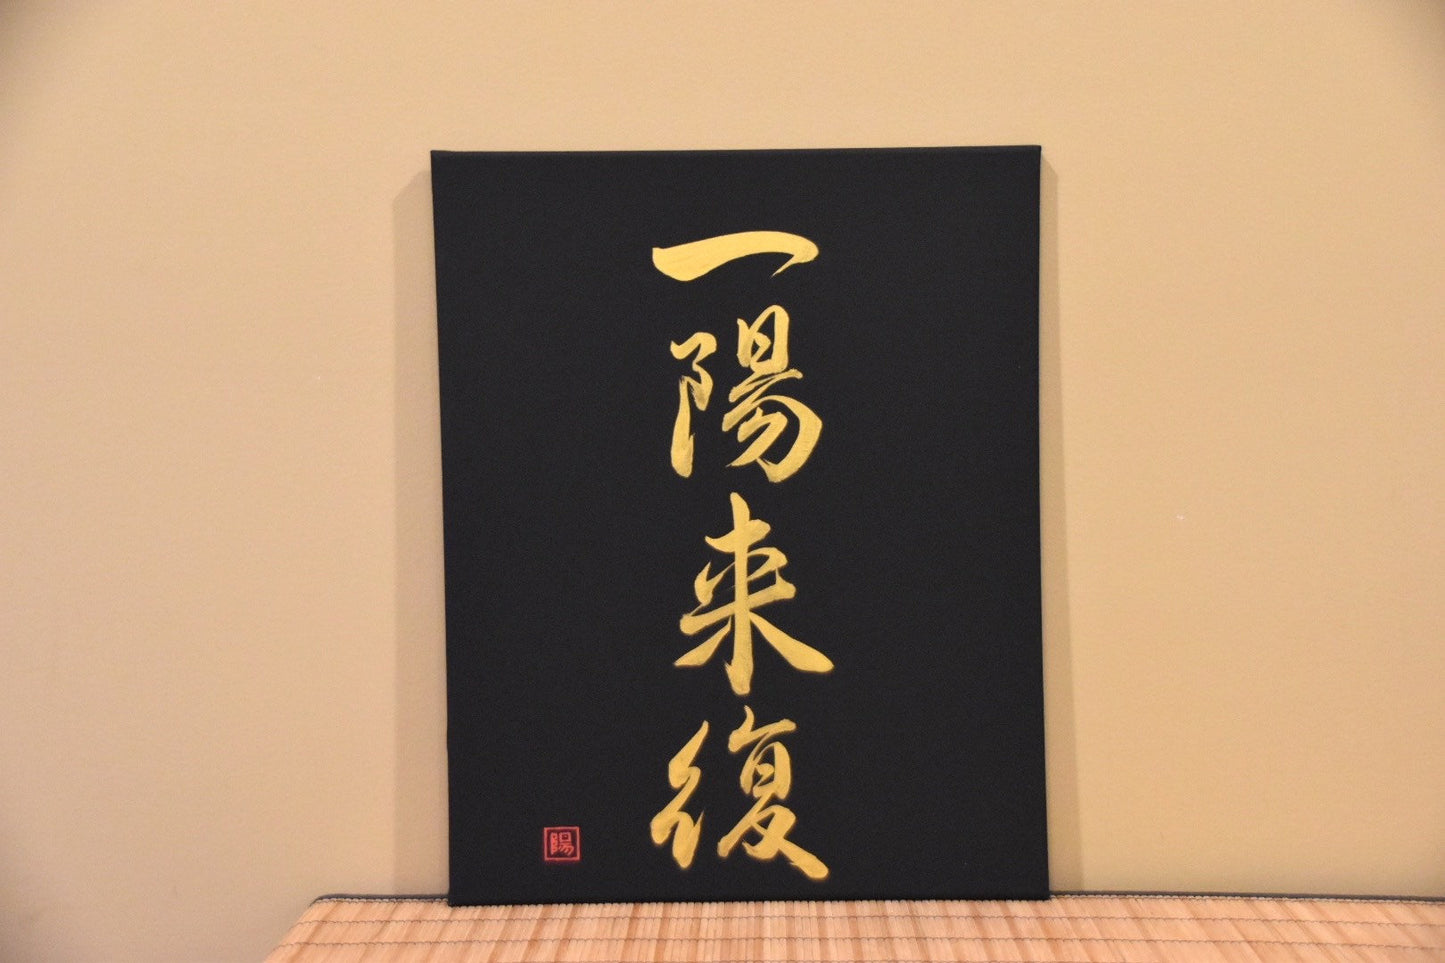 一陽来復
陽